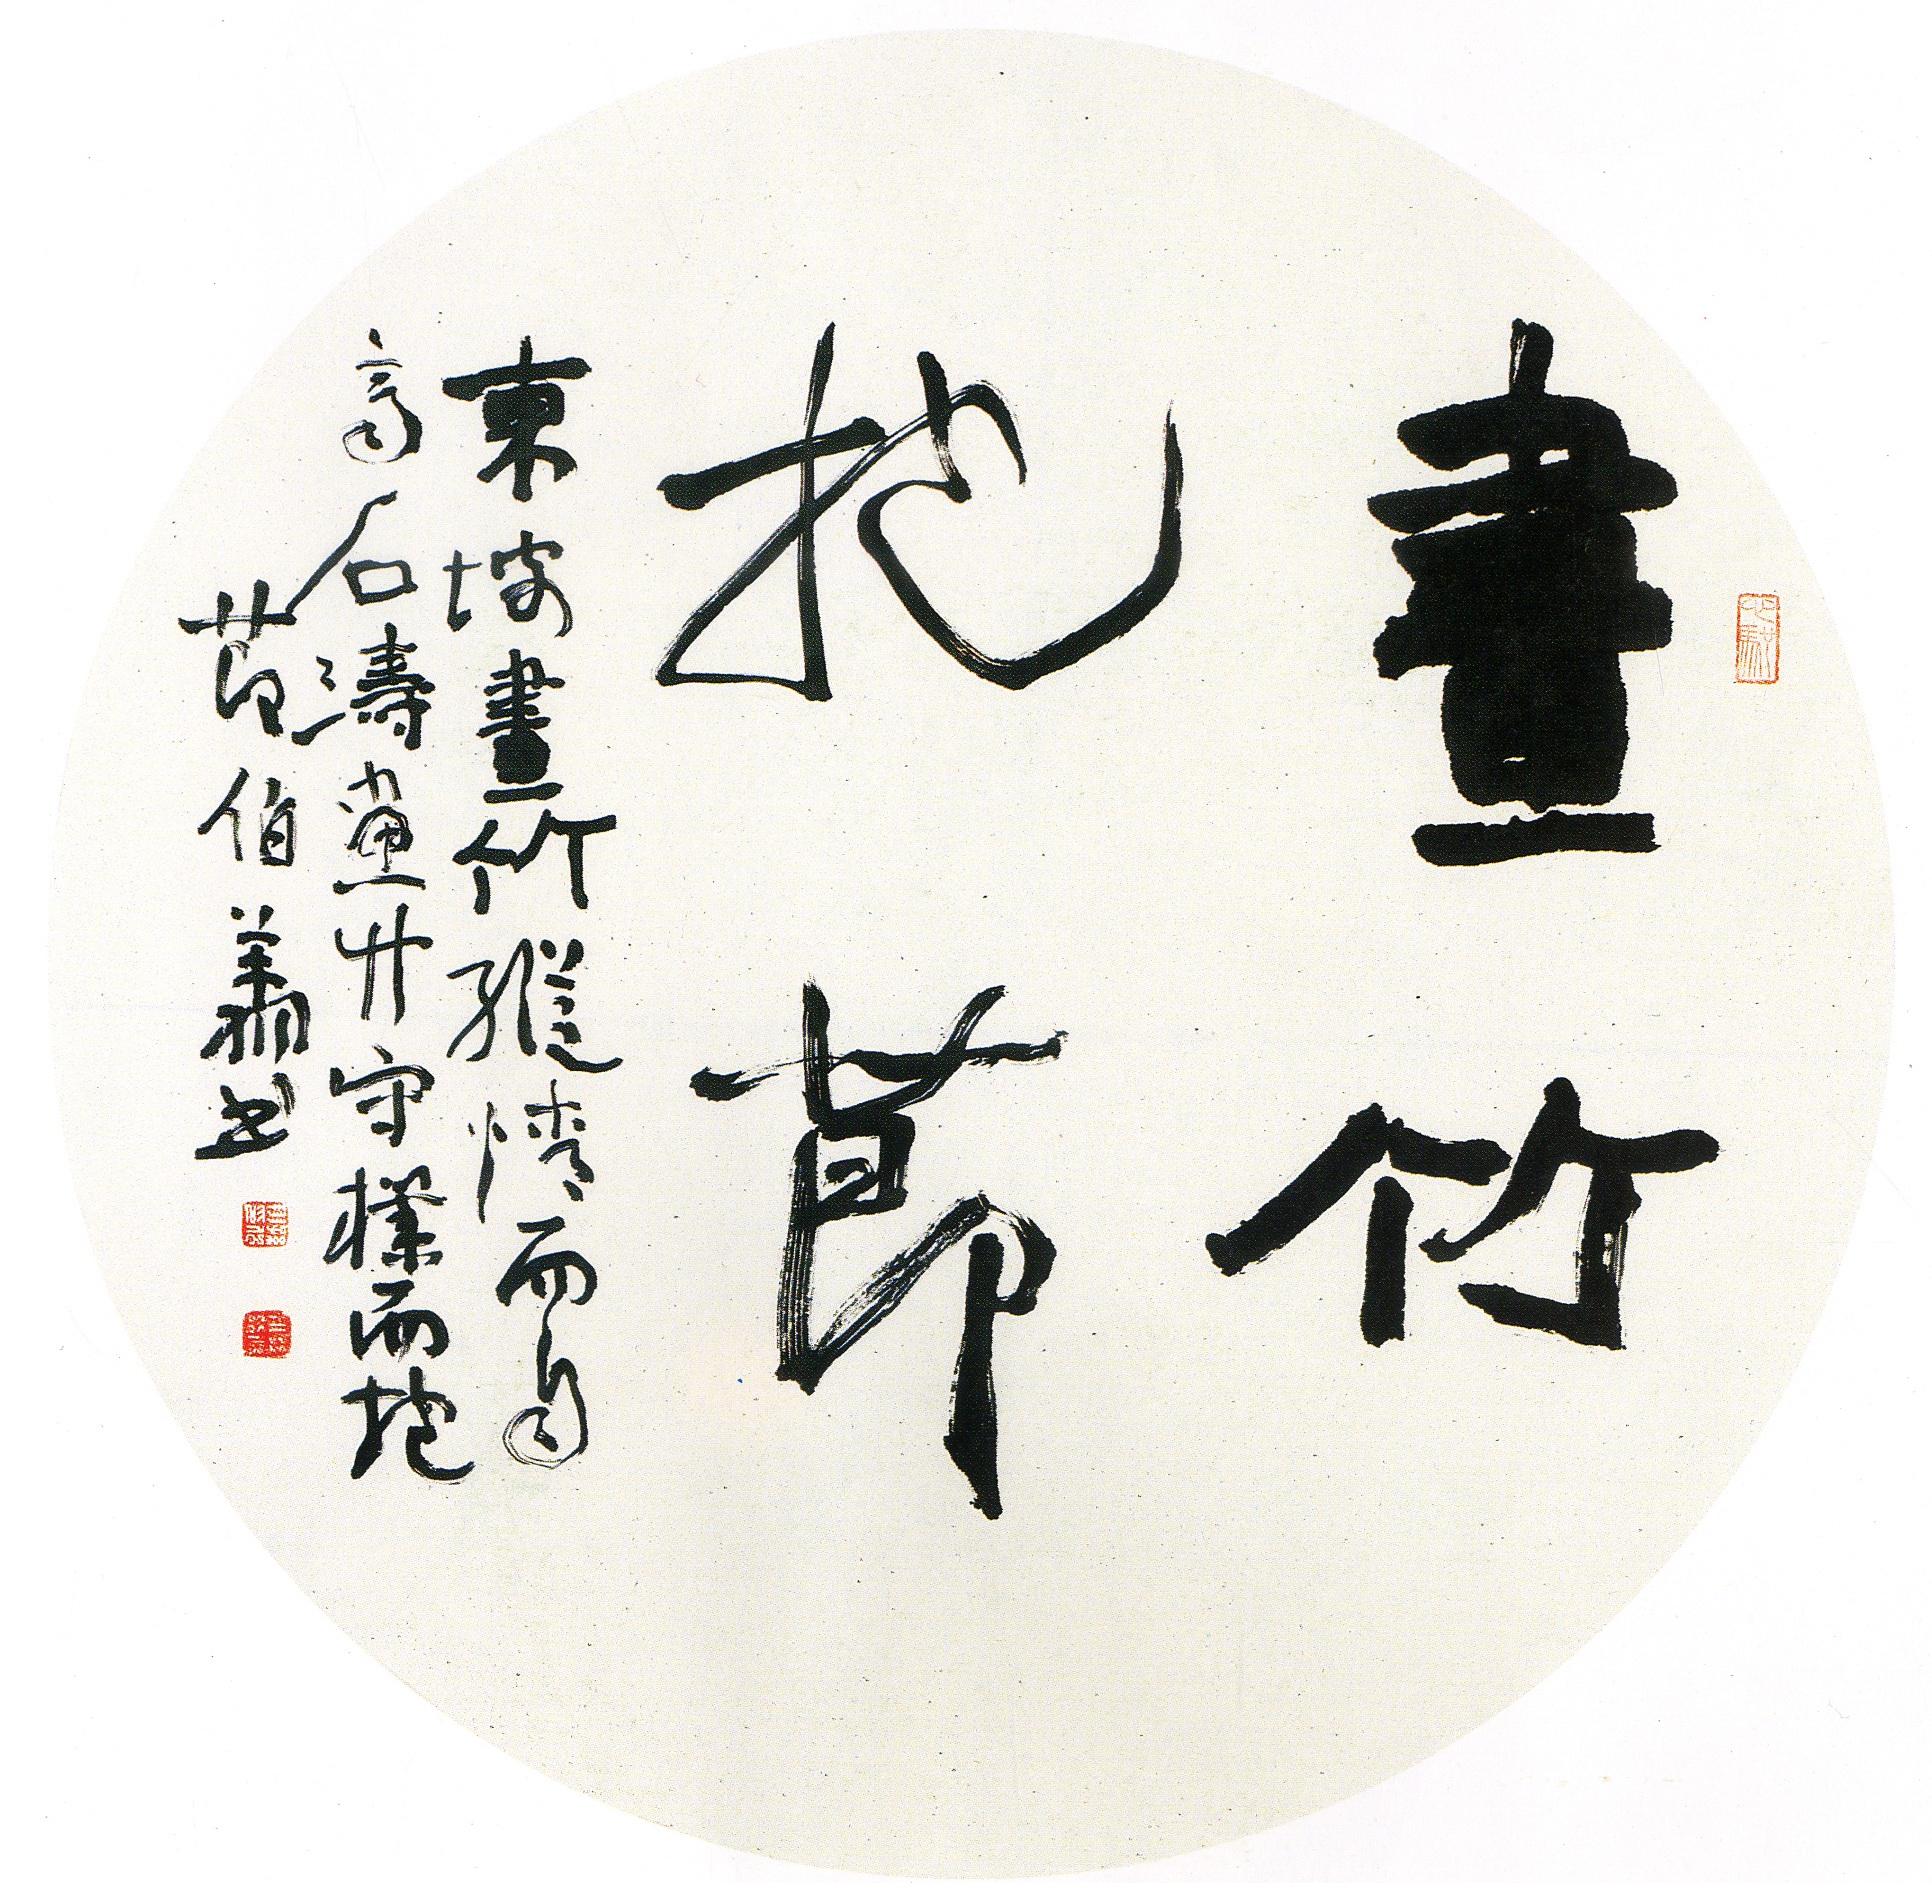 畫竹
抱節
東坡畫竹縱情而自
高石濤畫竹守樸而抱
節伯書